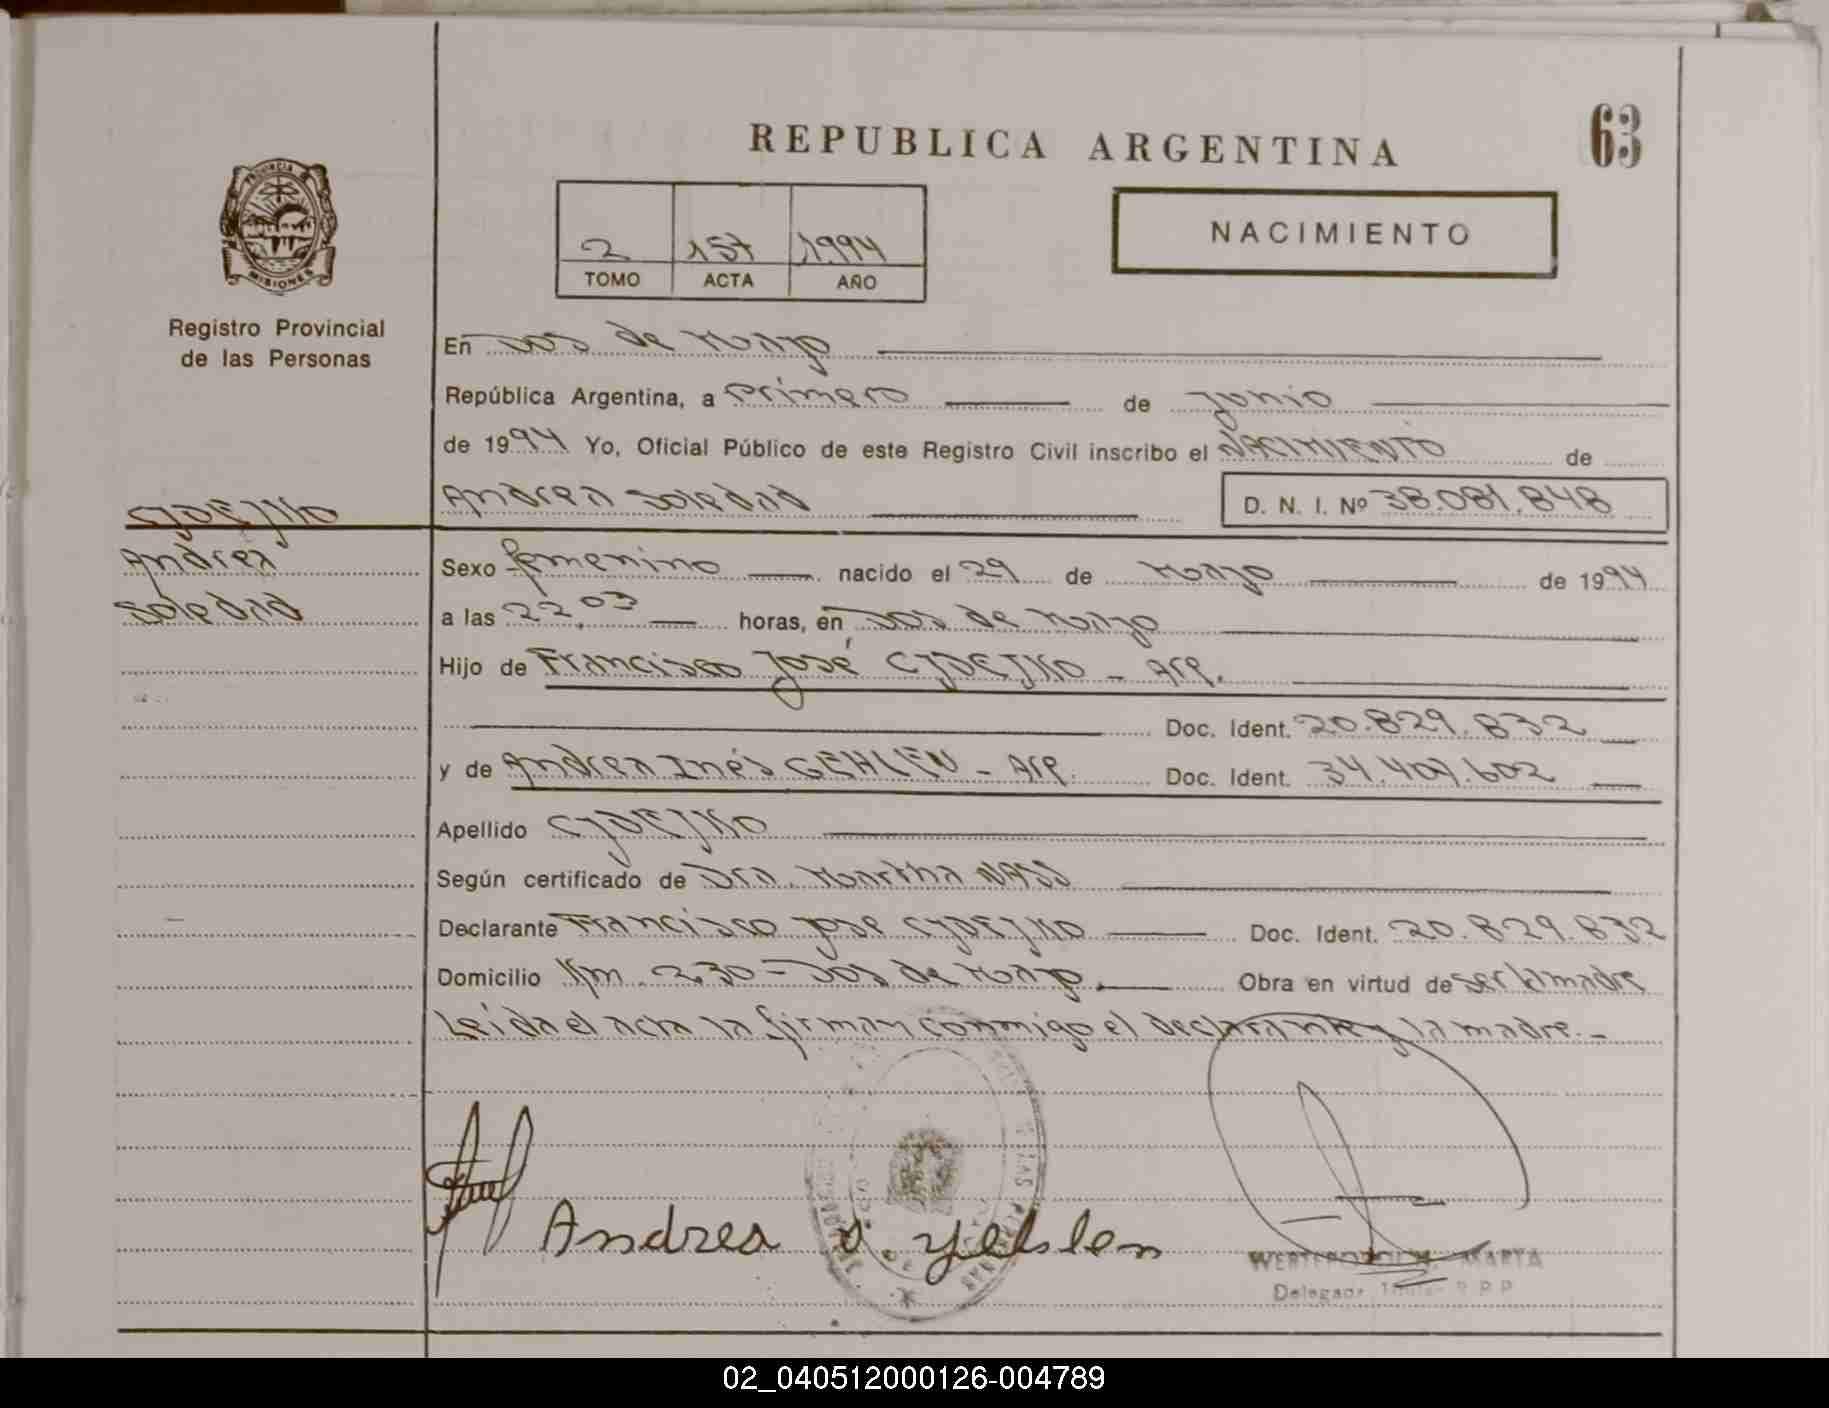 REPUBLICA ARGENTINA
63
PROVINCIA DE
MISIONES
Registro Provincial
de las Personas
NACIMIENTO
2 157 1994
TOMO ACTA AÑO
En Dos de Mayo
República Argentina, a primero de junio
de 1994 Yo, Oficial Público de este Registro Civil inscribo el NACIMIENTO de
Andrea Soledad D. N. I. Nº 38.081.848
CYDEJKO
Andrea
Soledad
Sexo femenino nacido el 29 de Mayo de 1994
a las 22,03 horas, en Dos de Mayo
Hijo de Francisco José CYDEJKO - Arg.
Doc. Ident. 20.829.832
y de Andrea Inés GEHLEN - Arg. Doc. Ident. 34.409.602
Apellido CYDEJKO
Según certificado de Dra. Martha NASS
Declarante Francisco José CYDEJKO Doc. Ident. 20.829.832
Domicilio Km. 230 - Dos de Mayo. Obra en virtud de ser la madre
Leída el acta la firman conmigo el declarante y la madre.-
Andrea
MARTA
Titular R.P.P
02_040512000126-004789